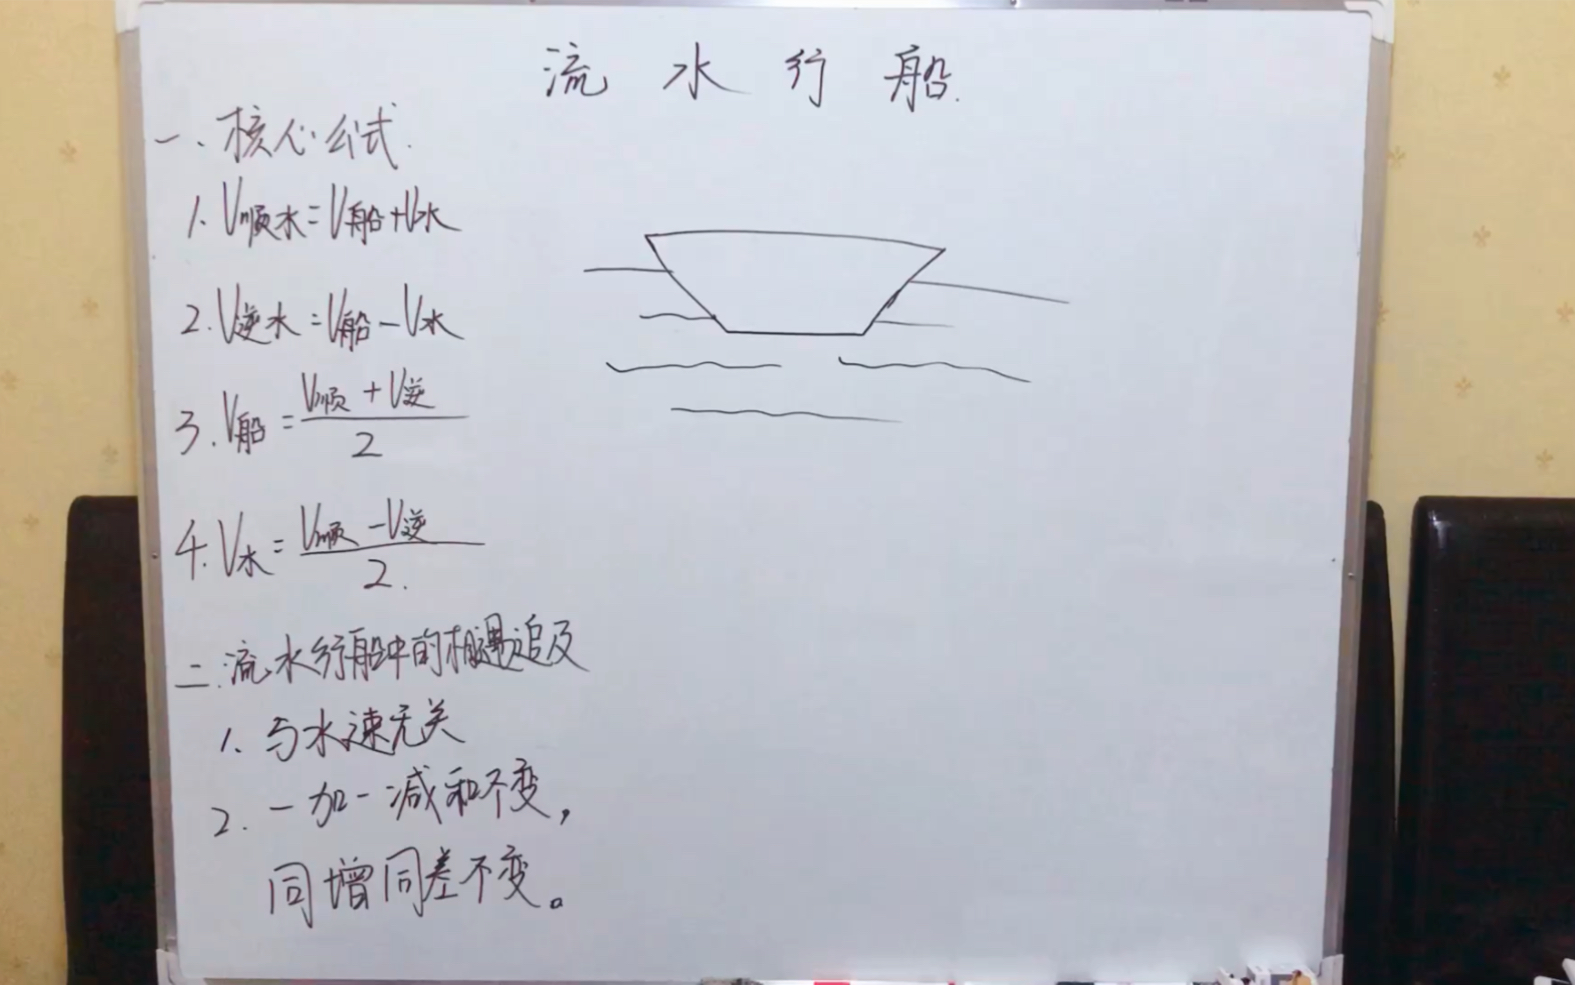 流水行船.
一、核心公式.
1.V顺水=V船+V水
2.V逆水=V船-V水
3.V船=(V顺+V逆)/2
4.V水=(V顺-V逆)/2.
二.流水行船中的相遇追及
1、与水速无关
2.一加一减和不变，
同增同差不变。